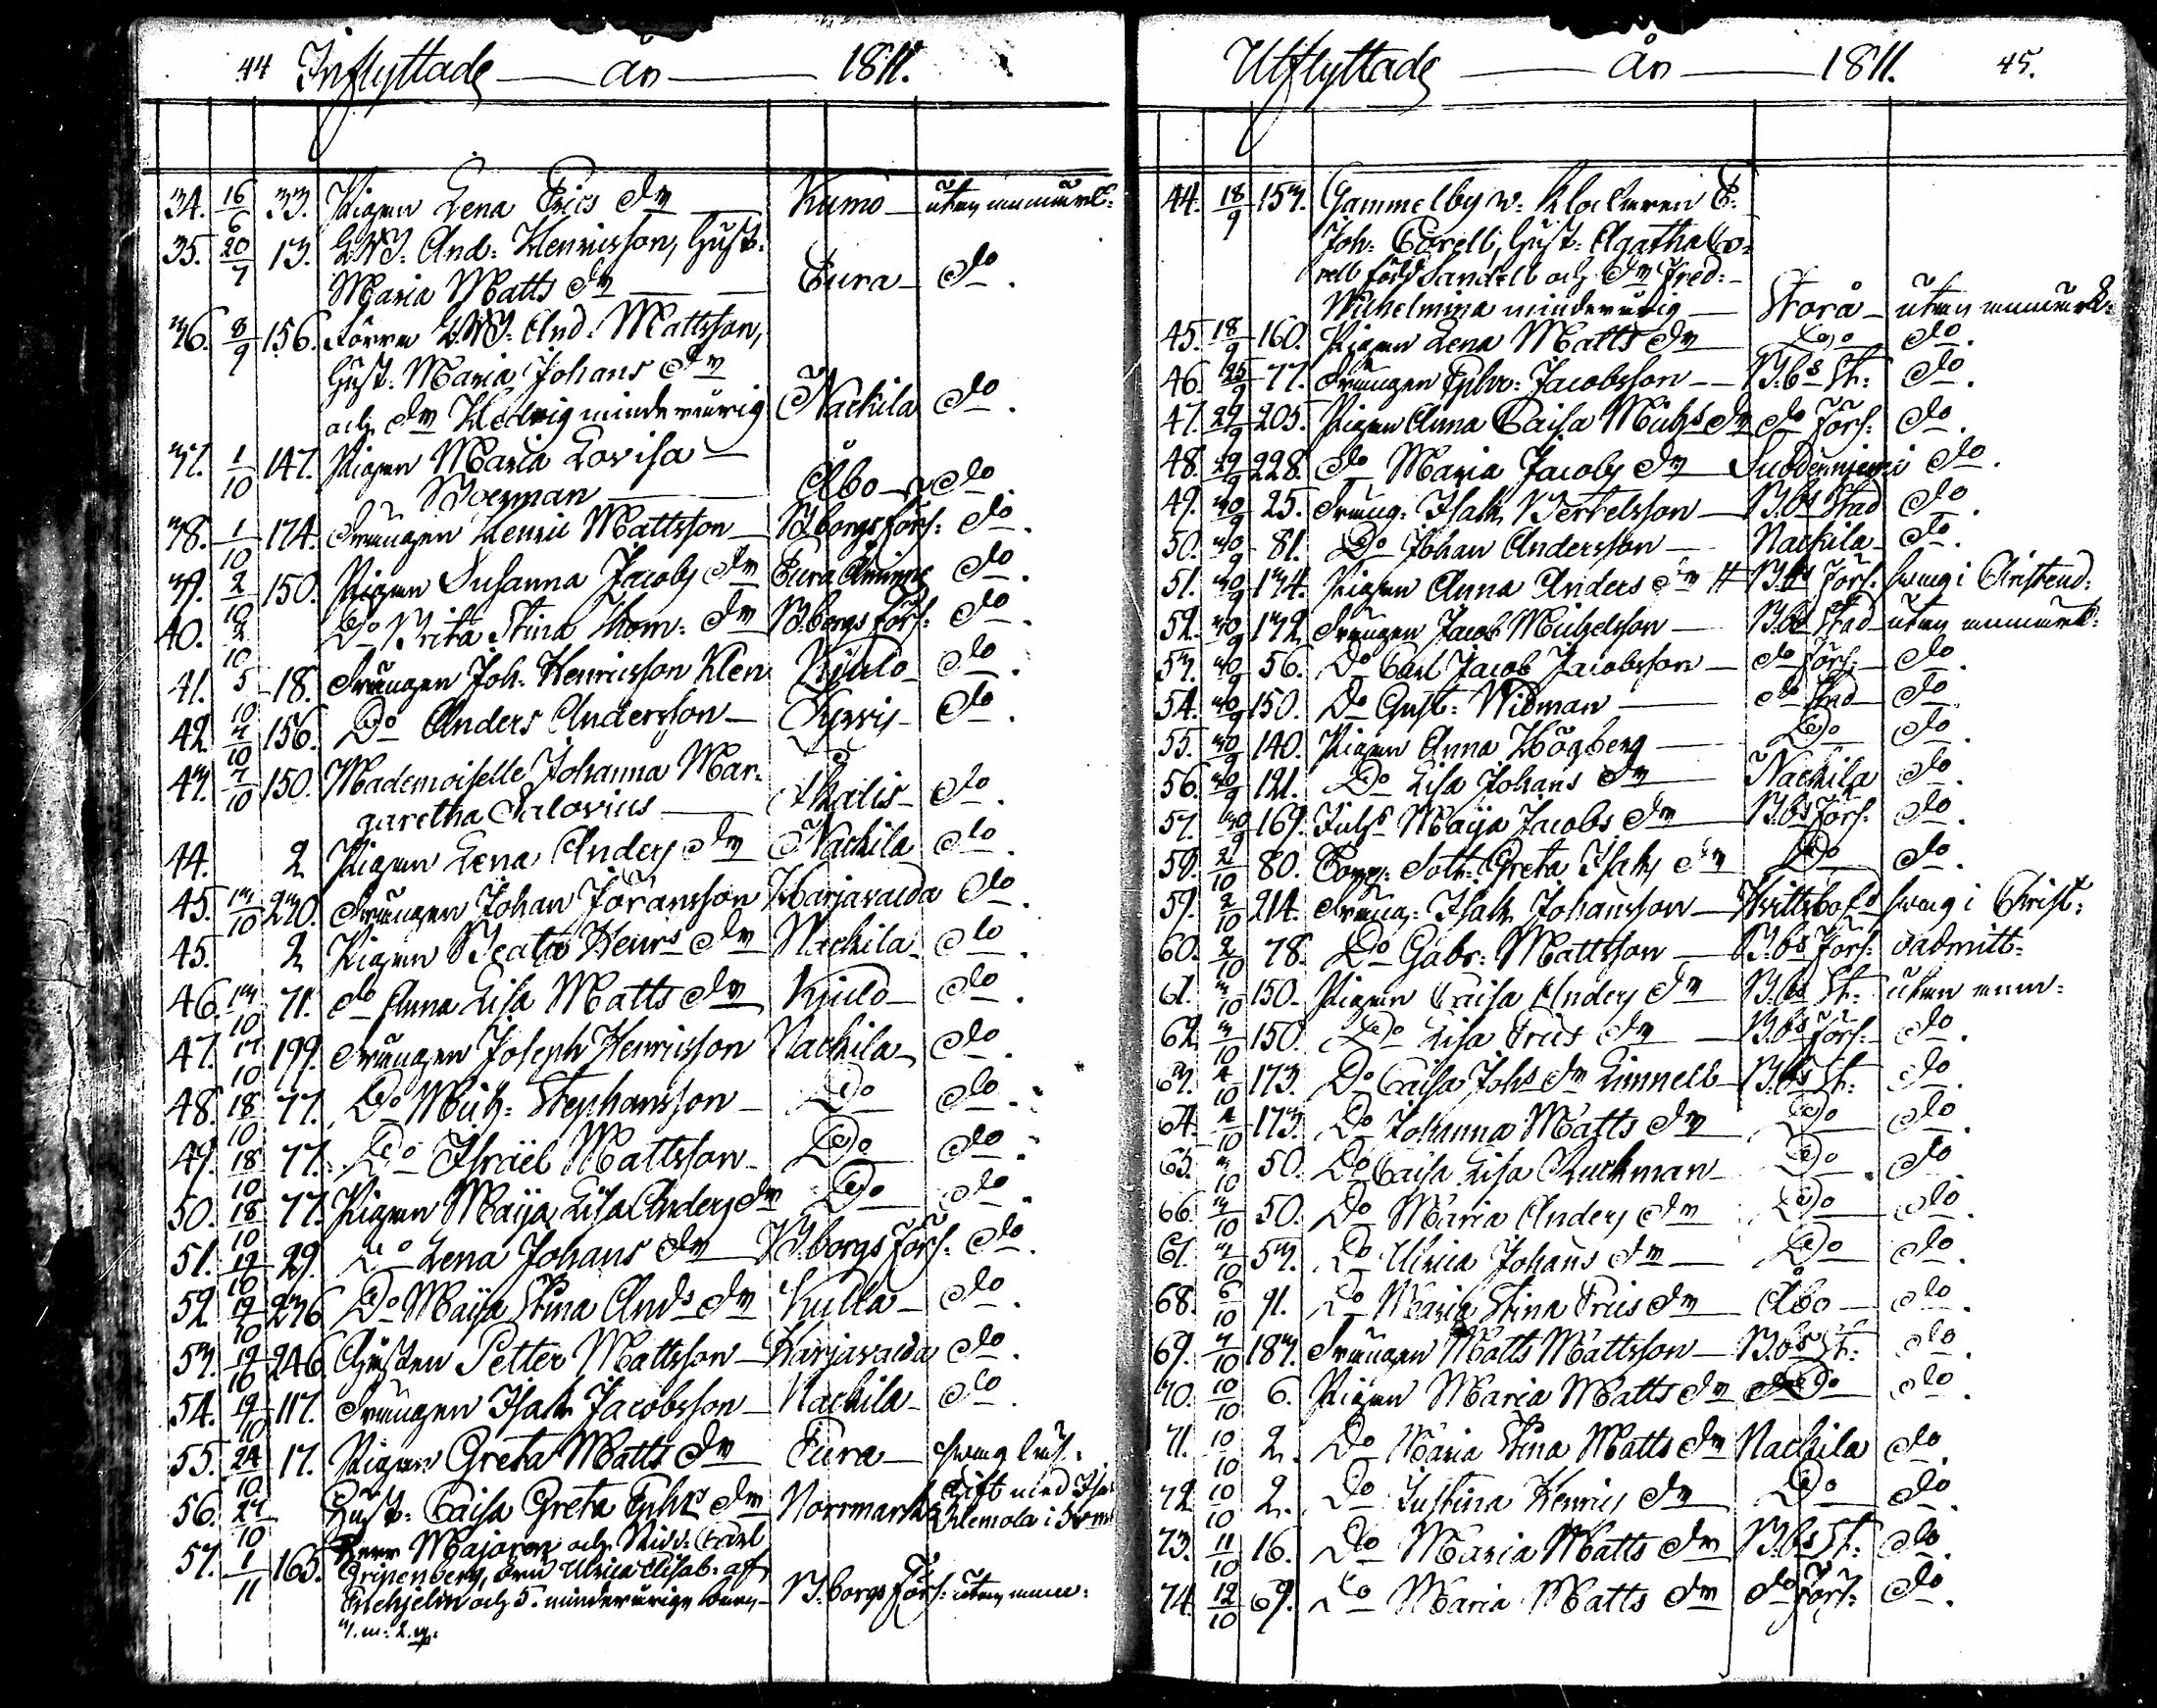 44 Inflyttade — år — 1811.
34. 16/6 33. Pigan Lena Erics dr — Kumo — utan anmärk:
35. 20/7 13. And: Henricsson, Hust:
Maria Matts dr — Eura — do.
36. 8/9 156. And: Mattsson,
Hust: Maria Johans dr
och dr Hedvig minderårig Nackila do.
37. 1/10 147. Pigan Maria Lovisa —
— Åbo — do.
38. 1/10 174. Drängen Henric Mattsson — B:borgs förs: do.
39. 2/10 150. Pigan Susanna Jacobs dr Eura do.
40. 2/10 Do Brita Stina Thom: dr B:borgs förs: do.
41. 5/10 18. Drängen Joh: Henricsson Klen Kjulo — do.
42. 7/10 156. Do Anders Andersson — — do.
43. 7/10 150. Mademoiselle Johanna Mar-
garetha Salovius — — do.
44. 2 Pigan Lena Anders dr Nackila do.
45. 13/10 230. Drängen Johan Jöransson Harjavalda do.
45. 2 Pigan Beata Henrs dr Nackila — do.
46. 13/10 71. do Anna Lisa Matts dr Kjulo — do.
47. 17/10 199. Drängen Joseph Henricsson Nackila — do.
48. 18/10 77. Do Mich: Stephansson — Do — do.
49. 18/10 77. Do Israël Mattsson — Do — do.
50. 18/10 77. Pigan Maija Lisa Anders dr Do — do.
51. 19/10 29. Do Lena Johans dr — B:borgs förs: do.
52. 19/10 236 Do Maija Stina Ands dr Kulla — do.
53. 19/10 246. Gossen Petter Mattsson — Harjavalda do.
54. 19/10 117. Drängen Isak Jacobsson — Nackila — do.
55. 24/10 17. Pigan Greta Matts dr Eura —
56. 27/10 Hust: Caisa Greta Ephrs dr Norrmark Gift med Isac
Klemola i
57. 1/11 165. Herr Majoren och Ridd: Carl
Gripenberg, Ulrica Elisab: af
Enehjelm och 5. minderåriga barn — B:borgs förs: utan anm:
Utflyttade — År — 1811. 45.
44. 18/9 153. Gammelby v: Klockaren E:
Joh: Corell, Hust: Agatha Co-
rell född Sandell och dr Fred:
Wilhelmina minderårig — Storå — utan anmärk:
45. 18/9 160. Pigan Lena Matts dr — Do — do.
46. 25/9 77. Drängen Ephr: Jacobsson — B:bs St: do.
47. 29/9 205. Pigan Anna Caisa Michs dr do förs: do.
48. 29/9 228. do Maria Jacobs dr — do.
49. 30/9 25. Dräng: Isak Bertelsson — B:bs Stad do.
50. 30/9 81. Do Johan Andersson — Nackila — do.
51. 30/9 134. Pigan Anna Anders dr B:bs förs: svag i Christend:
52. 30/9 132 Drängen Jacob Michelsson — B:bs Stad utan anmärk:
53. 30/9 56. Do Carl Jacob Jacobsson — do förs: — do.
54. 30/9 150. Do Gust: Widman — do Stad — do.
55. 30/9 140. Pigan Anna Högberg — Do — do.
56. 30/9 121. Do Lisa Johans dr Nackila do.
57. 30/9 169. Maija Jacobs dr — B:bs förs: do.
59. 2/10 80. Greta Isaks dr Do — do.
59. 2/10 214. Dräng: Isak Johansson — svag i Christ:
60. 2/10 78. Do Gabr: Mattsson — B:bs förs: oadmitt:
61. 3/10 150. Pigan Caisa Anders dr B:bs St: utan anm:
62. 3/10 150. Do Lisa Erics dr — B:bs förs: do.
63. 4/10 173. Do Caisa Johs dr Linnell — B:bs St: do.
64. 4/10 173. Do Johanna Matts dr — Do — do.
65. 3/10 50. Do Caisa Lisa Ruckman — Do — do.
66. 3/10 50. Do Maria Anders dr Do — do.
67. 3/10 53. Do Ulrica Johans dr — Do — do.
68. 6/10 91. Do Maria Stina Erics dr — Åbo — do.
69. 7/10 183. Drängen Matts Mattsson — B:bs St: do.
70. 10/10 6. Pigan Maria Matts dr Do — do.
71. 10/10 2. Do Maria Stina Matts dr Nackila do.
72. 10/10 2. Do Justina Henrics dr Do — do.
73. 11/10 16. Do Maria Matts dr B:bs St: do.
74. 12/10 69. Do Maria Matts dr do förs: do.